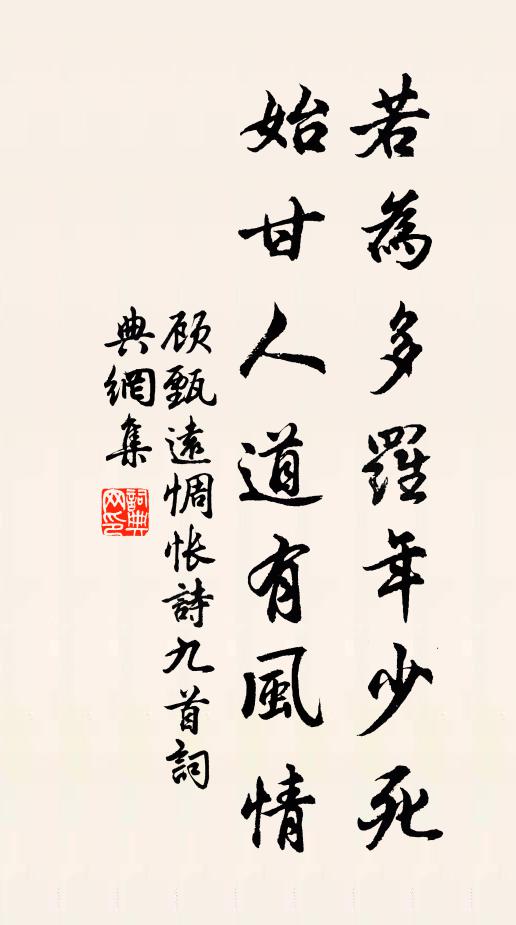 若為多羅年少死
始甘人道有風情
顾甄遠惆怅詩九首詞
典網集
詞典网印